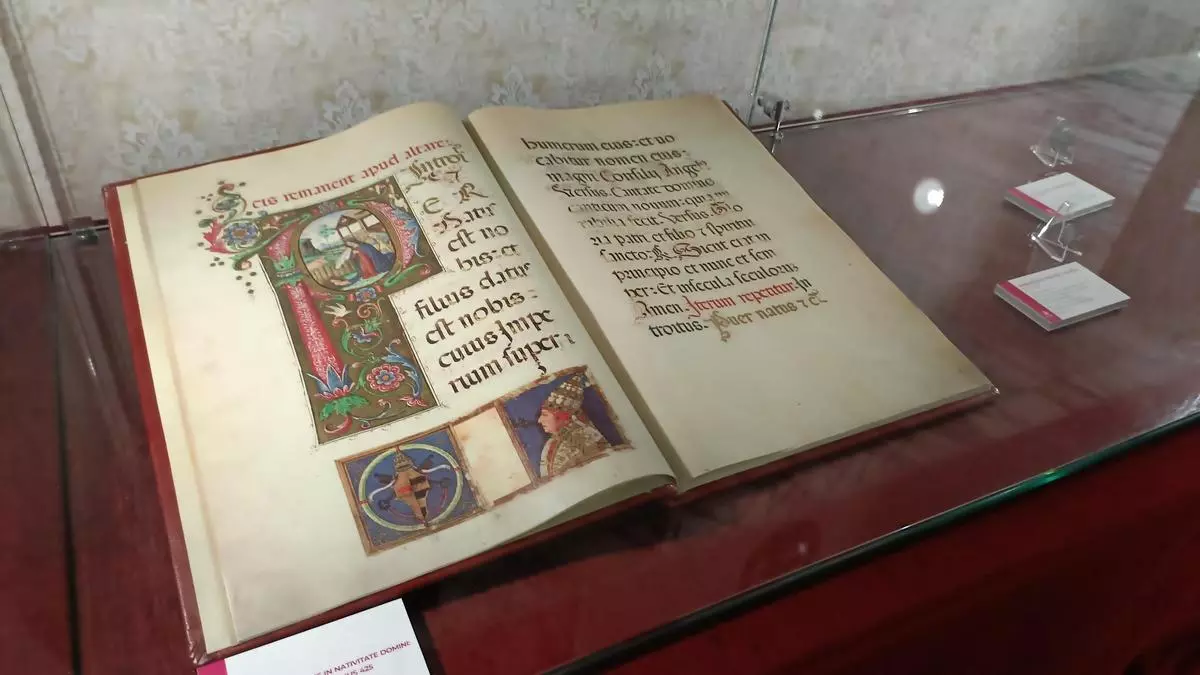 Seus remanent apud altare:
Introi
P
E R
Uer
est no
bis: et
filius datus
est nobis:
cuius Impe
rium super
humerum eius: et uo
cabitur nomen eius:
magni Consilij Angelus
Versus. Cantate domino
canticum nouum: quia mi
rabilia fecit. Versus. Glo
ria patri et filio et spiritui
sancto: R. Sicut erat in
principio et nunc et sem
per: Et in secula seculorum
Amen. Iterum repetitur. In
troitus. Puer natus et c
IN NATIVITATE DOMINI:
US 425